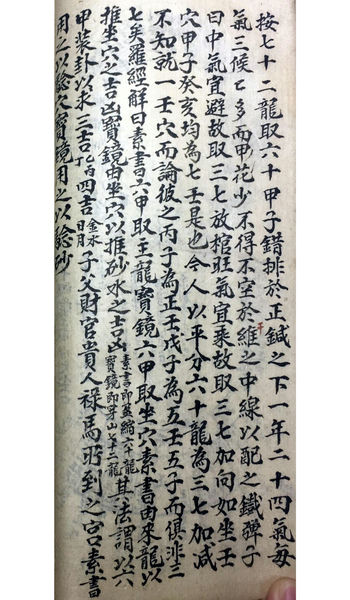 按七十二龍取六十甲子錯排於正鍼之下一年二十四氣每
氣三候已多而甲花少不得不空於干維之中線以配之鐵彈子
曰中氣宜避故取三七放棺旺氣宜乘故取三七加向如坐壬
穴甲子癸亥均為七壬是也今人以平分六十龍為三七加減
不知就一壬穴而論彼之丙子為正壬戊子為五壬五子而俱非三
七矣羅經解曰素書六甲取主龍寶鏡六甲取坐穴素書由來龍以
推坐穴之吉凶寶鏡由坐穴以推砂水之吉凶素書即盈縮六十龍寶鏡即穿山七十二龍其法謂以六
甲裝卦以求三吉四吉金水日月子父財官貴人祿馬所到之宮素書
用之以驗穴寶鏡用之以驗砂